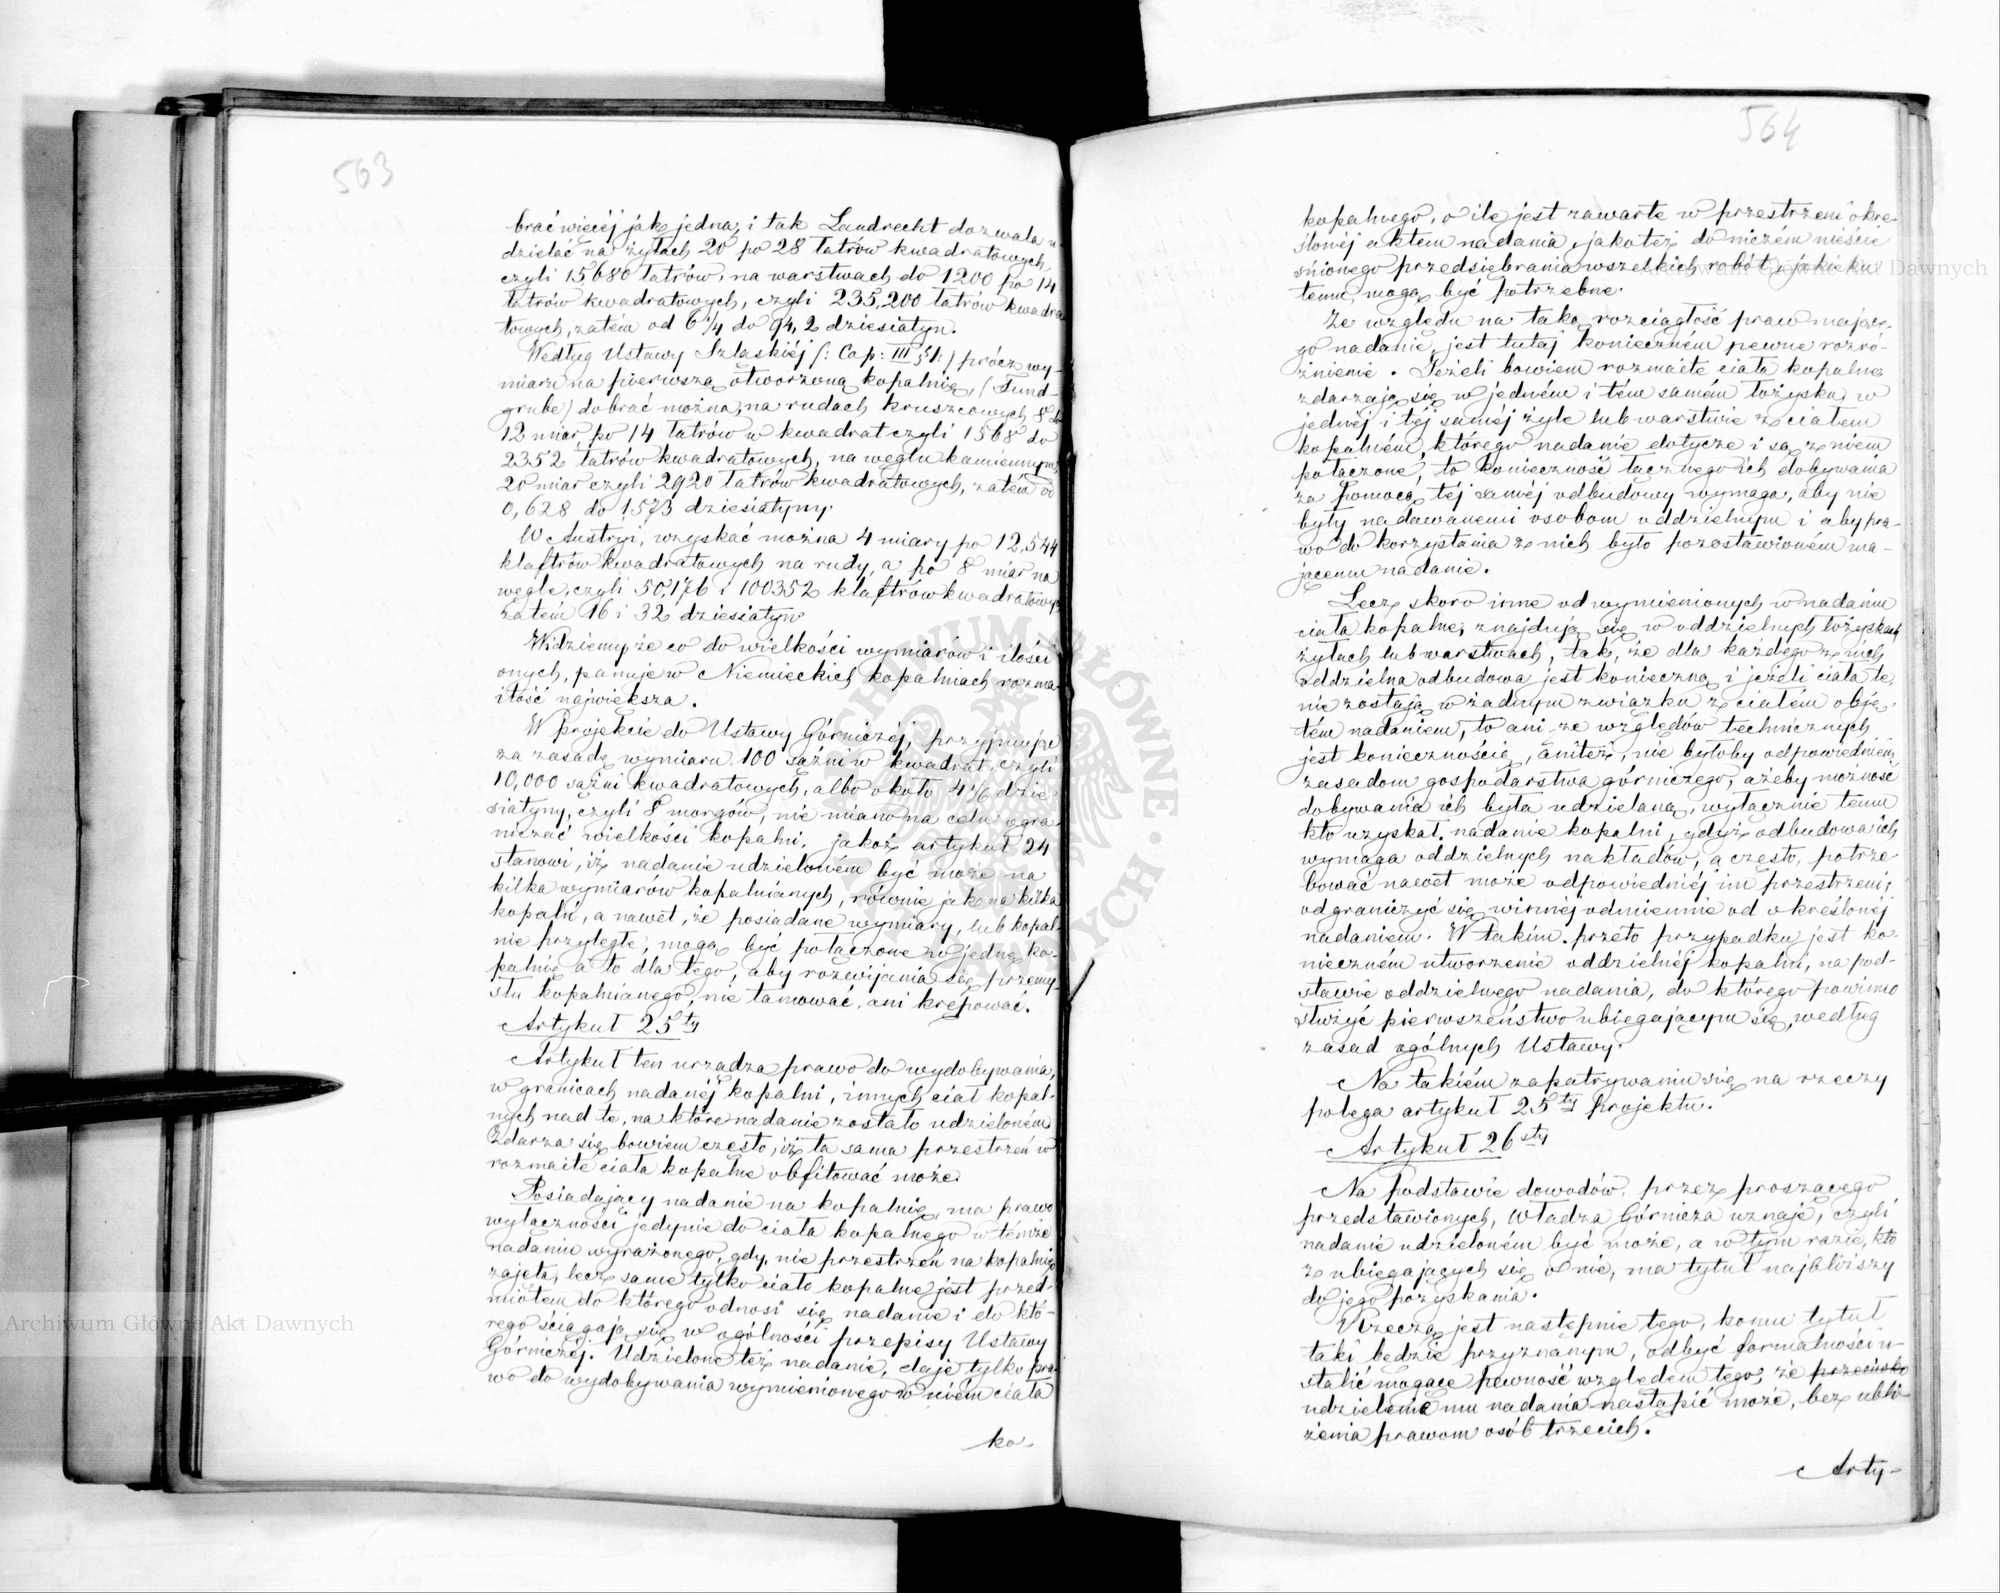 563
brać więcéj jak jedną, i tak Landrecht dozwala u-
dzielać na żyłach 20 po 28 łatrów kwadratowych,
czyli 15680 łatrów, na warstwach do 1200 po 14
łatrów kwadratowych, czyli 235,200 łatrów kwadra
towych, zatém od 6 1/4 do 94,2 dziesiatyn.
Według Ustawy Szląskiéj (: Cap: III §1:) prócz wy-
miaru na pierwszą otworzoną kopalnię, (Fund-
grube) dobrać można, na rudach kruszcowych 8 do
12 miar po 14 łatrów w kwadrat czyli 1568 do
2352 łatrów kwadratowych, na węglu kamiennym
20 miar czyli 2920 łatrów kwadratowych, zatém od
0,628 do 1573 dziesiatyny.
W Austryi, wzyskać można 4 miary po 12,544
klaftrów kwadratowych na rudy, a po 8 miar na
węgle, czyli 50,176 i 100352 klaftrów kwadratowych
zatém 16 i 32 dziesiatyn
Widziemy że co do wielkości wymiarów i ilości
onych, panuje w Niemieckich kopalniach rozma-
itość największa.
W projekcie do Ustawy Górniczéj, przyjmując
za zasadę wymiaru 100 sążni w kwadrat, czyli
10,000 sążni kwadratowych, albo około 4 1/6 dzie-
siatyny, czyli 8 morgów, nie miano na celu ogra-
niczać wielkości kopalni, jakoż artykuł 24
stanowi, iż nadanie udzieloném być może na
kilka wymiarów kopalnianych, równie jak na kilka
kopalń, a nawet, że posiadane wymiary, lub kopal-
nie przyległe, mogą być połączone w jedną ko-
palnię a to dla tego, aby rozwijania się przemy-
słu kopalnianego, nie tamować, ani krępować.
Artykuł 25ty
Artykuł ten urządza prawo do wydobywania,
w granicach nadanéj kopalni, innych ciał kopal-
nych nad te, na które nadanie zostało udzieloném
Zdarza się bowiem często, iż ta sama przestrzeń w
rozmaite ciała kopalne obfitować może.
Posiadający nadanie na kopalnię, ma prawo
wyłączności jedynie do ciała kopalnego w témże
nadaniu wyrażonego, gdy, nie przestrzeń na kopalnię
zajęta, lecz same tylko ciało kopalne jest przed-
miotem do którego odnosi się nadanie i do któ-
rego ściągają się w ogólności przepisy Ustawy
Górniczéj. Udzielone też nadanie, daje tylko pra-
wo do wydobywania wymienionego w niém ciała
ko-
564
kopalnego, o ile jest zawarte w przestrzeni okre-
ślonéj aktem nadania, jakoteż do niczém nieście
śnionego przedsiębrania wszelkich robót, jakie ku
temu, mogą być potrzebne.
Ze względu na taką rozciągłość praw mające-
go nadanie, jest tutaj konieczném pewne rozró-
żnienie. Jeżeli bowiem rozmaite ciała kopalne
zdarzają się w jedném i tém samém łożysku, w
jednéj i téj saméj żyle lub warstwie z ciałem
kopalném, którego nadanie dotycze i są z niem
połączone, to konieczność łącznego ich dobywania
za pomocą téj saméj odbudowy wymaga, aby nie
były nadawanemi osobom oddzielnym i aby pra-
wo do korzystania z nich było pozostawioném ma-
jącemu nadanie.
Lecz skoro inne od wymienionych w nadaniu
ciała kopalne, znajdują się w oddzielnych łożyskach
żyłach lub warstwach, tak, że dla każdego z nich
oddzielna odbudowa jest konieczną i jeżeli ciała te,
nie zostają w żadnym związku z ciałem obję-
tém nadaniem, to ani ze względów technicznych
jest koniecznością, aniteż, nie byłoby odpowiedniem
zasadom gospodarstwa górniczego, ażeby możność
dobywania ich była udzielaną, wyłącznie temu
kto uzyskał nadanie kopalni, gdyż odbudowa ich
wymaga oddzielnych nakładów, a często, potrze-
bować nawet może odpowiedniéj im przestrzeni;
odgraniczyć się winnéj odmiennie od określonéj
nadaniem. W takim przeto przypadku jest ko-
nieczném utworzenie oddzielnéj kopalni, na pod-
stawie oddzielnego nadania, do którego powinno
służyć pierwszeństwo ubiegającym się, według
zasad ogólnych Ustawy.
Na takiém zapatrywaniu się na rzeczy
polega artykuł 25ty Projektu.
Artykuł 26sty
Na podstawie dowodów, przez proszącego
przedstawionych, Władza Górnicza uznaje, czyli
nadanie udzieloném być może, a w tym razie, kto
z ubiegających się o nie, ma tytuł najbliższy
do jego pozyskania.
Rzeczą jest następnie tego, komu tytuł
taki będzie przyznanym, odbyć formalności u-
stalić mogące pewność względem tego, że
udzielenie mu nadania nastąpić może, bez ubli-
żenia prawom osób trzecich.
Arty-
Archiwum Główne Akt Dawnych
Archiwum Główne Akt Dawnych
ARCHIWUM GŁÓWNE AKT DAWNYCH